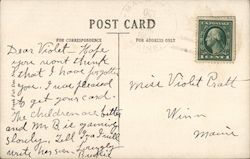 POST CARD
FOR CORRESPONDENCE
FOR ADDRESS ONLY
Dear Violet - Hope
you wont think
that I have forgotten
you. I was pleased
to get your card.
The children are better
and Mr B is gaining
slowly. Tell
write her soon. Lovingly
Miss Violet Pratt
Winn
Maine